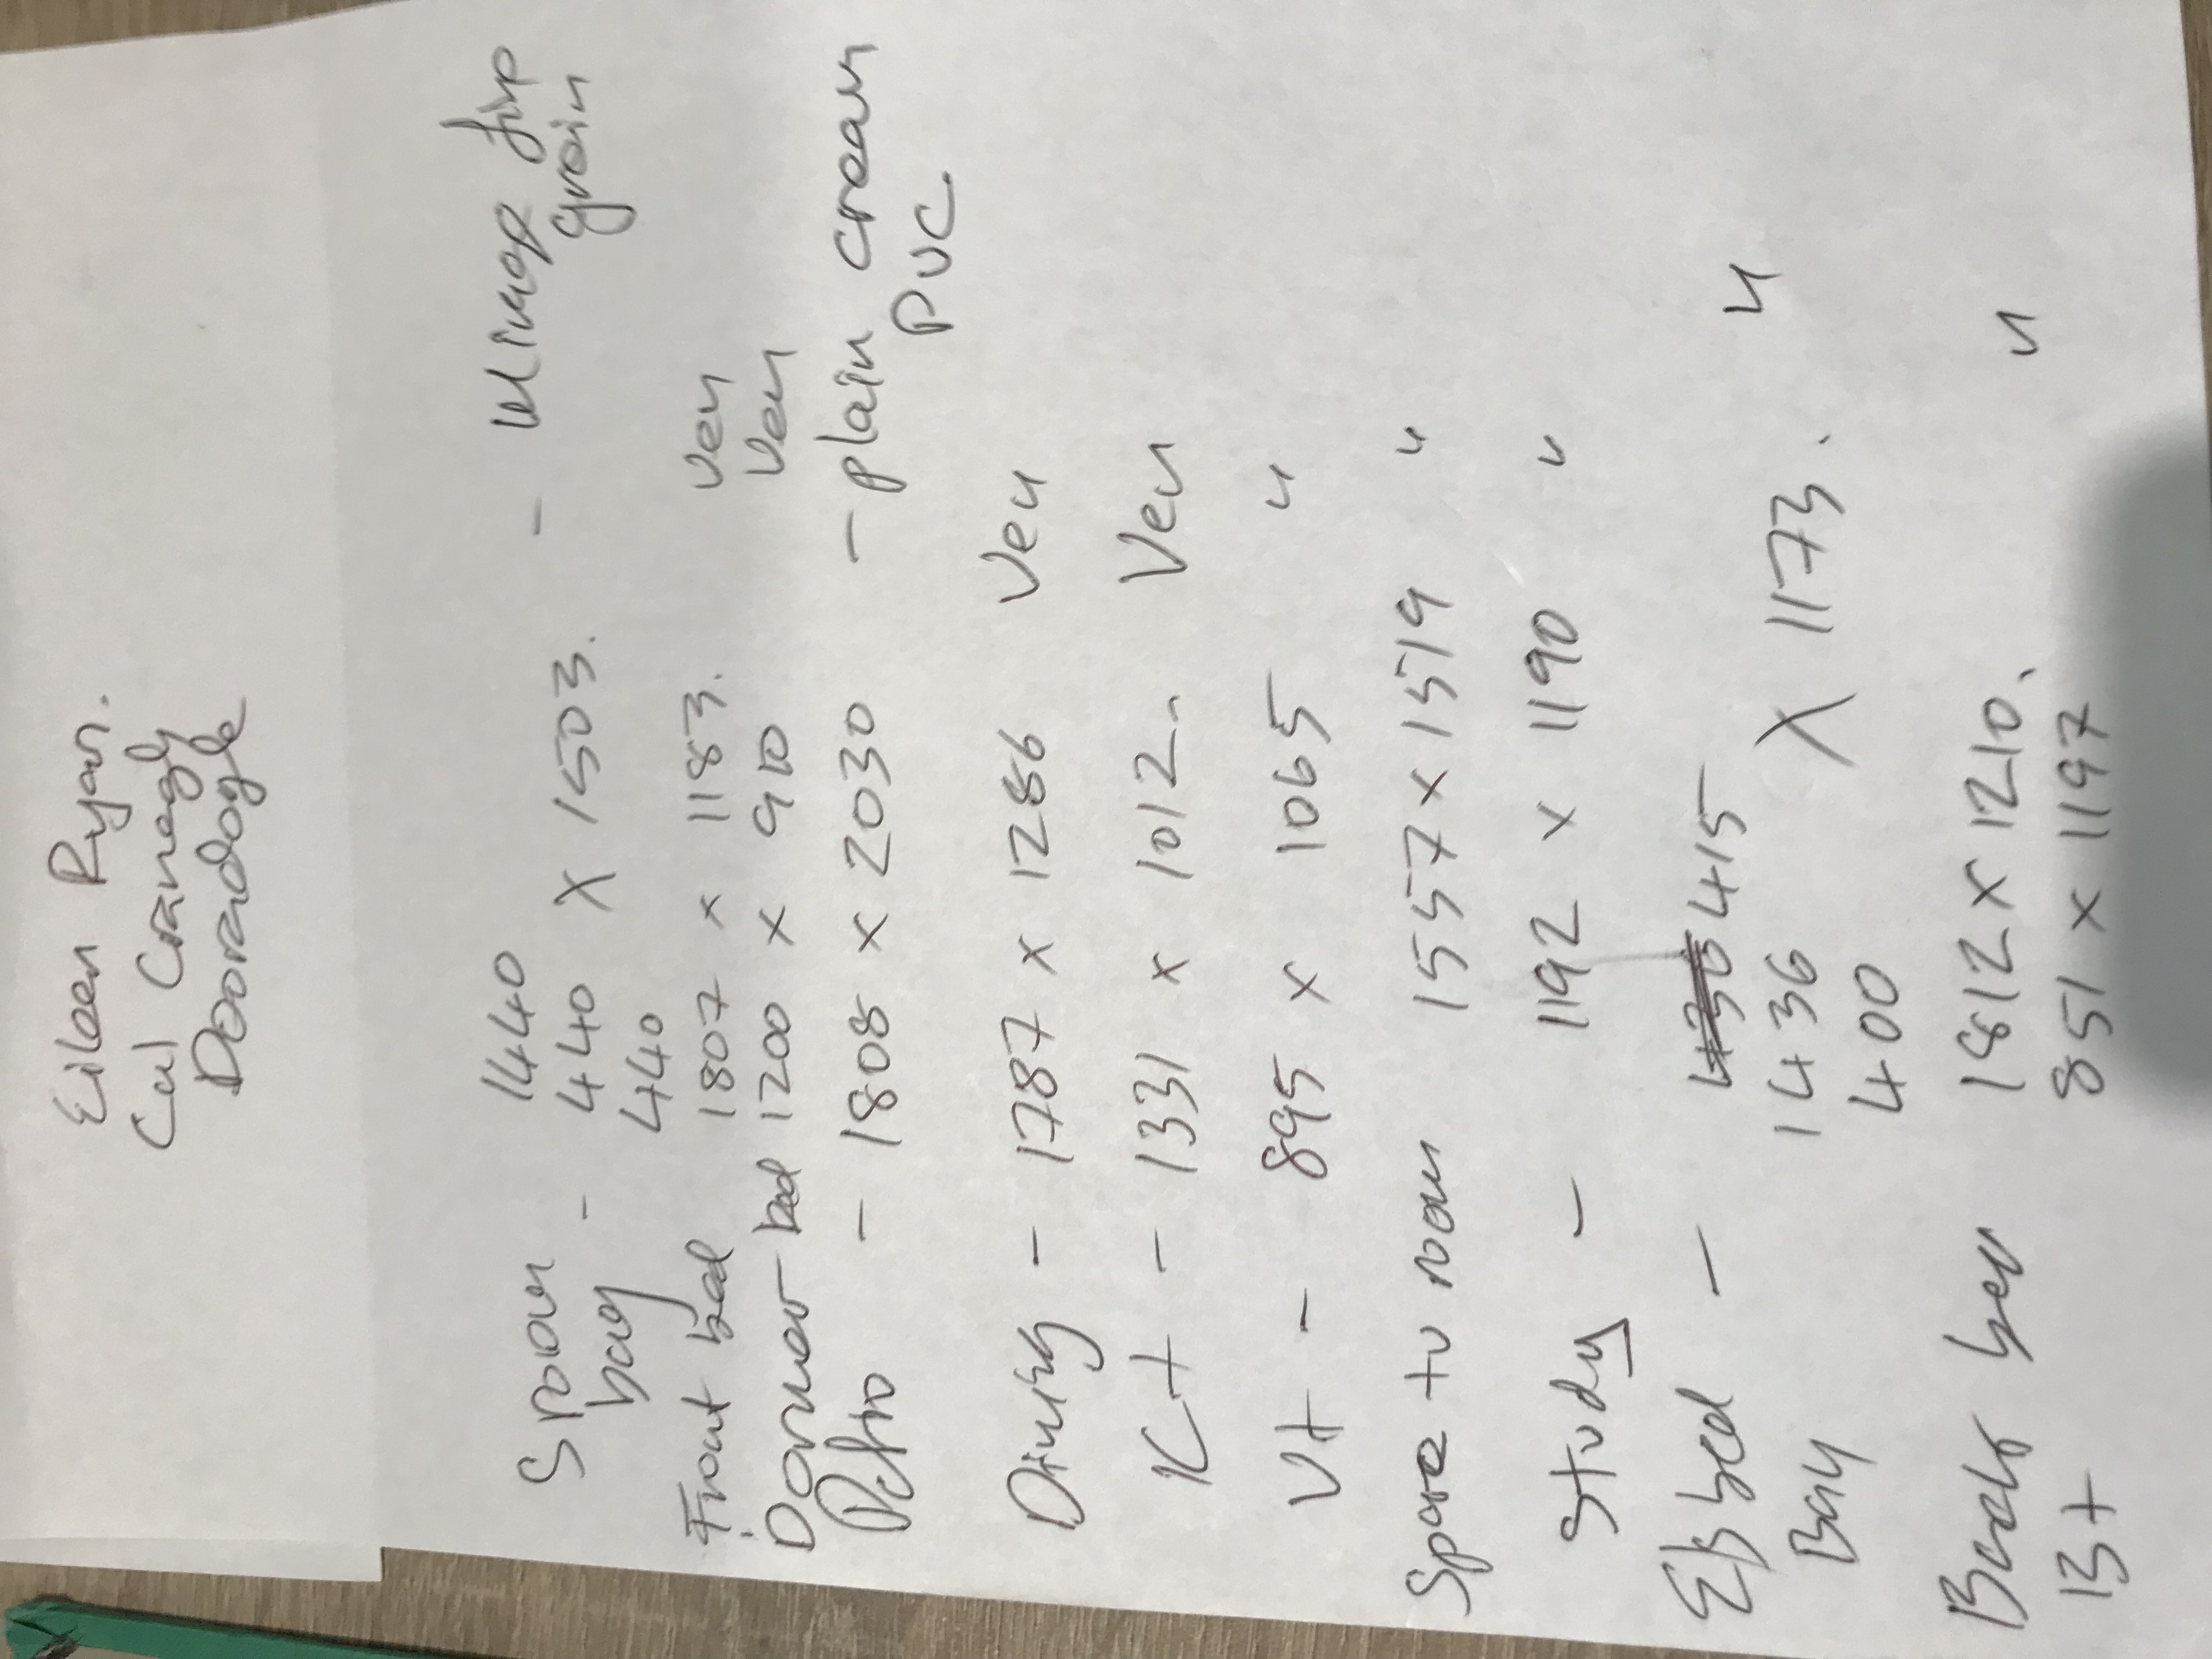 Eileen Ryan.
Cul Cranagh
Dooradoyle
1440
Sroom - 440 X 1503. - Mirage fine
bay 440 grain
Front bed 1807 x 1183. Ven
Dormer bed 1200 x 910 Ven
Patio - 1808 x 2030 - plain cream
PVC.
Dining - 1787 x 1286 Ven
Kt - 1331 x 1012. Ven
Ut - 895 x 1065 "
Spare tv room 1557 x 1519 "
Study - 1192 x 1190 "
E/s bed - 415
Bay 1436 X 1173. "
400
Back bed 1812 x 1210.
Bt 851 x 1197 "